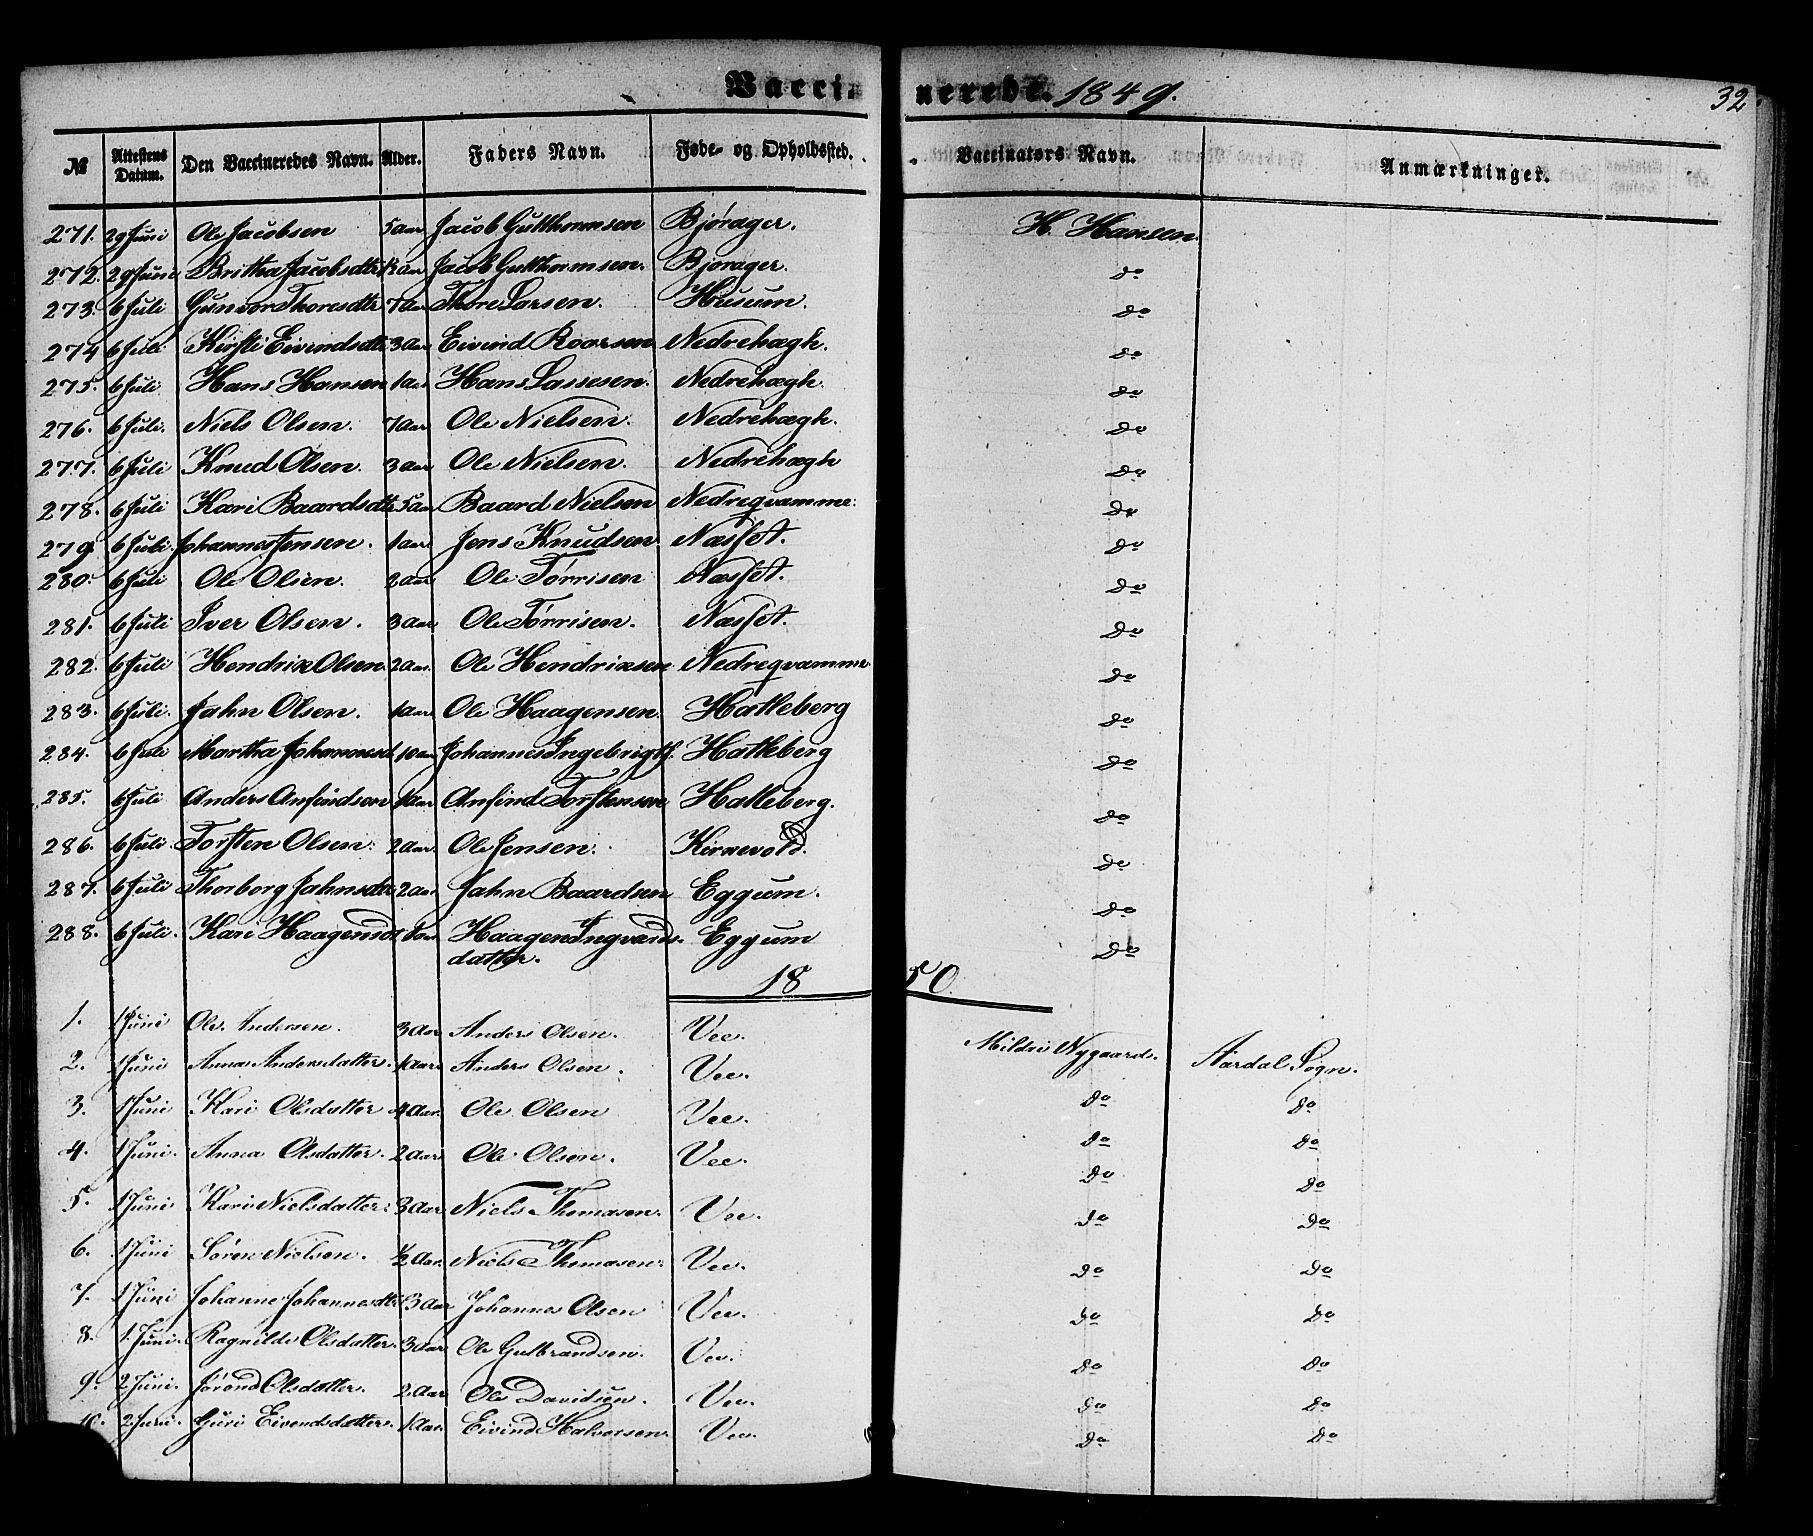 Vaccinerede. 1849. 32
No Attestens Datum. Den Vaccineredes Navn. Alder. Faders Navn. Føde- og Opholdssted. Vaccinators Navn. Anmærkninger.
271. 29 Juni Ole Jacobsen 5 aar Jacob Gutthormsen Bjørager. H. Hansen
272. 29 Juni Britha Jacobsdtr aar Jacob Gutthormsen. Bjorager. do
273. 6 Juli Gunvor Thoresdtr 7 aar Thore Larsen. Husum. do
274 6 Juli Kirsti Eivindsdtr 3 Aar Eivind Roarsen Nedrehægh. do
275. 6 Juli Hans Hansen 1 aar Hans Lassesen. Nedrehægh. do
276. 6 Juli. Niels Olsen. 7 Aar Ole Nielsen. Nedrehægh. do
277. 6 Juli Knud Olsen. 3 aar Ole Nielsen. Nedrehægh do
278. 6 Juli Kari Baardsdtr 5 aar Baard Nielsen Nedreqvamme. do
279. 6 Juli. Johannes Jensen. 1 aar. Jens Knudsen Næsset. do
280. 6 Juli Ole Olsen. 2 aar. Ole Tørrisen Næsset. do
281. 6 Juli Iver Olsen. 3 Aar. Ole Tørrisen. Næsset. do
282. 6 Juli Hendrik Olsen 2 aar. Ole Hendriksen Nedreqvamme. do
283. 6 Juli. Jahn Olsen. 1 aar. Ole Haagensen. Hatleberg do
284. 6 Juli Martha Johannesd. 10 aar Johannes Ingebrigts. Hatleberg do
285. 6 Juli Anders Anfindsen 1 aar. Anfind Torstensen Hatleberg. do
286. 6 Juli. Torsten Olsen. 2 aar. Ole Jensen. Kirkevold. do
287. 6 Juli Thorborg Jahnsdtr 2 aar Jahn Baardsen Eggum. do
288. 6 Juli. Kari Haagensdt aar Haagen Ingvards- Eggum do
datter.
1850.
1. 1 Juni Ole Andersen. 3 Aar Anders Olsen. Vee. Mildri Nygaard. Aardal Sogn.
2. 1 Juni Anna Andersdatter. 1 Aar. Anders Olsen. Vee. do do
3. 1 Juni Kari Olsdatter 4 Aar. Ole Olsen Vee. do do
4. 1 Juni. Anna Olsdatter. 2 Aar Ole Olsen. Vee. do do
5. 1 Juni Kari Nielsdatter. 3 Aar Niels Thomasen. Vee. do do
6. 1 Juni Søren Nielsen. 1/2 Aar. Niels Thomasen. Vee. do do
7. 1 Juni Johanne Johannesdtr 3 Aar Johannes Olsen Vee. do do
8. 1. Juni. Ragnilde Olsdatter. 3 Aar Ole Gulbrandsen. Vee. do do
9. 2 Juni. Jørond Olsdatter. 2 Aar Ole Davidsen. Vee. do do
10. 2 Juni. Guri Eivendsdatter. 1 Aar. Eivind Halvorsen. Vee. do do